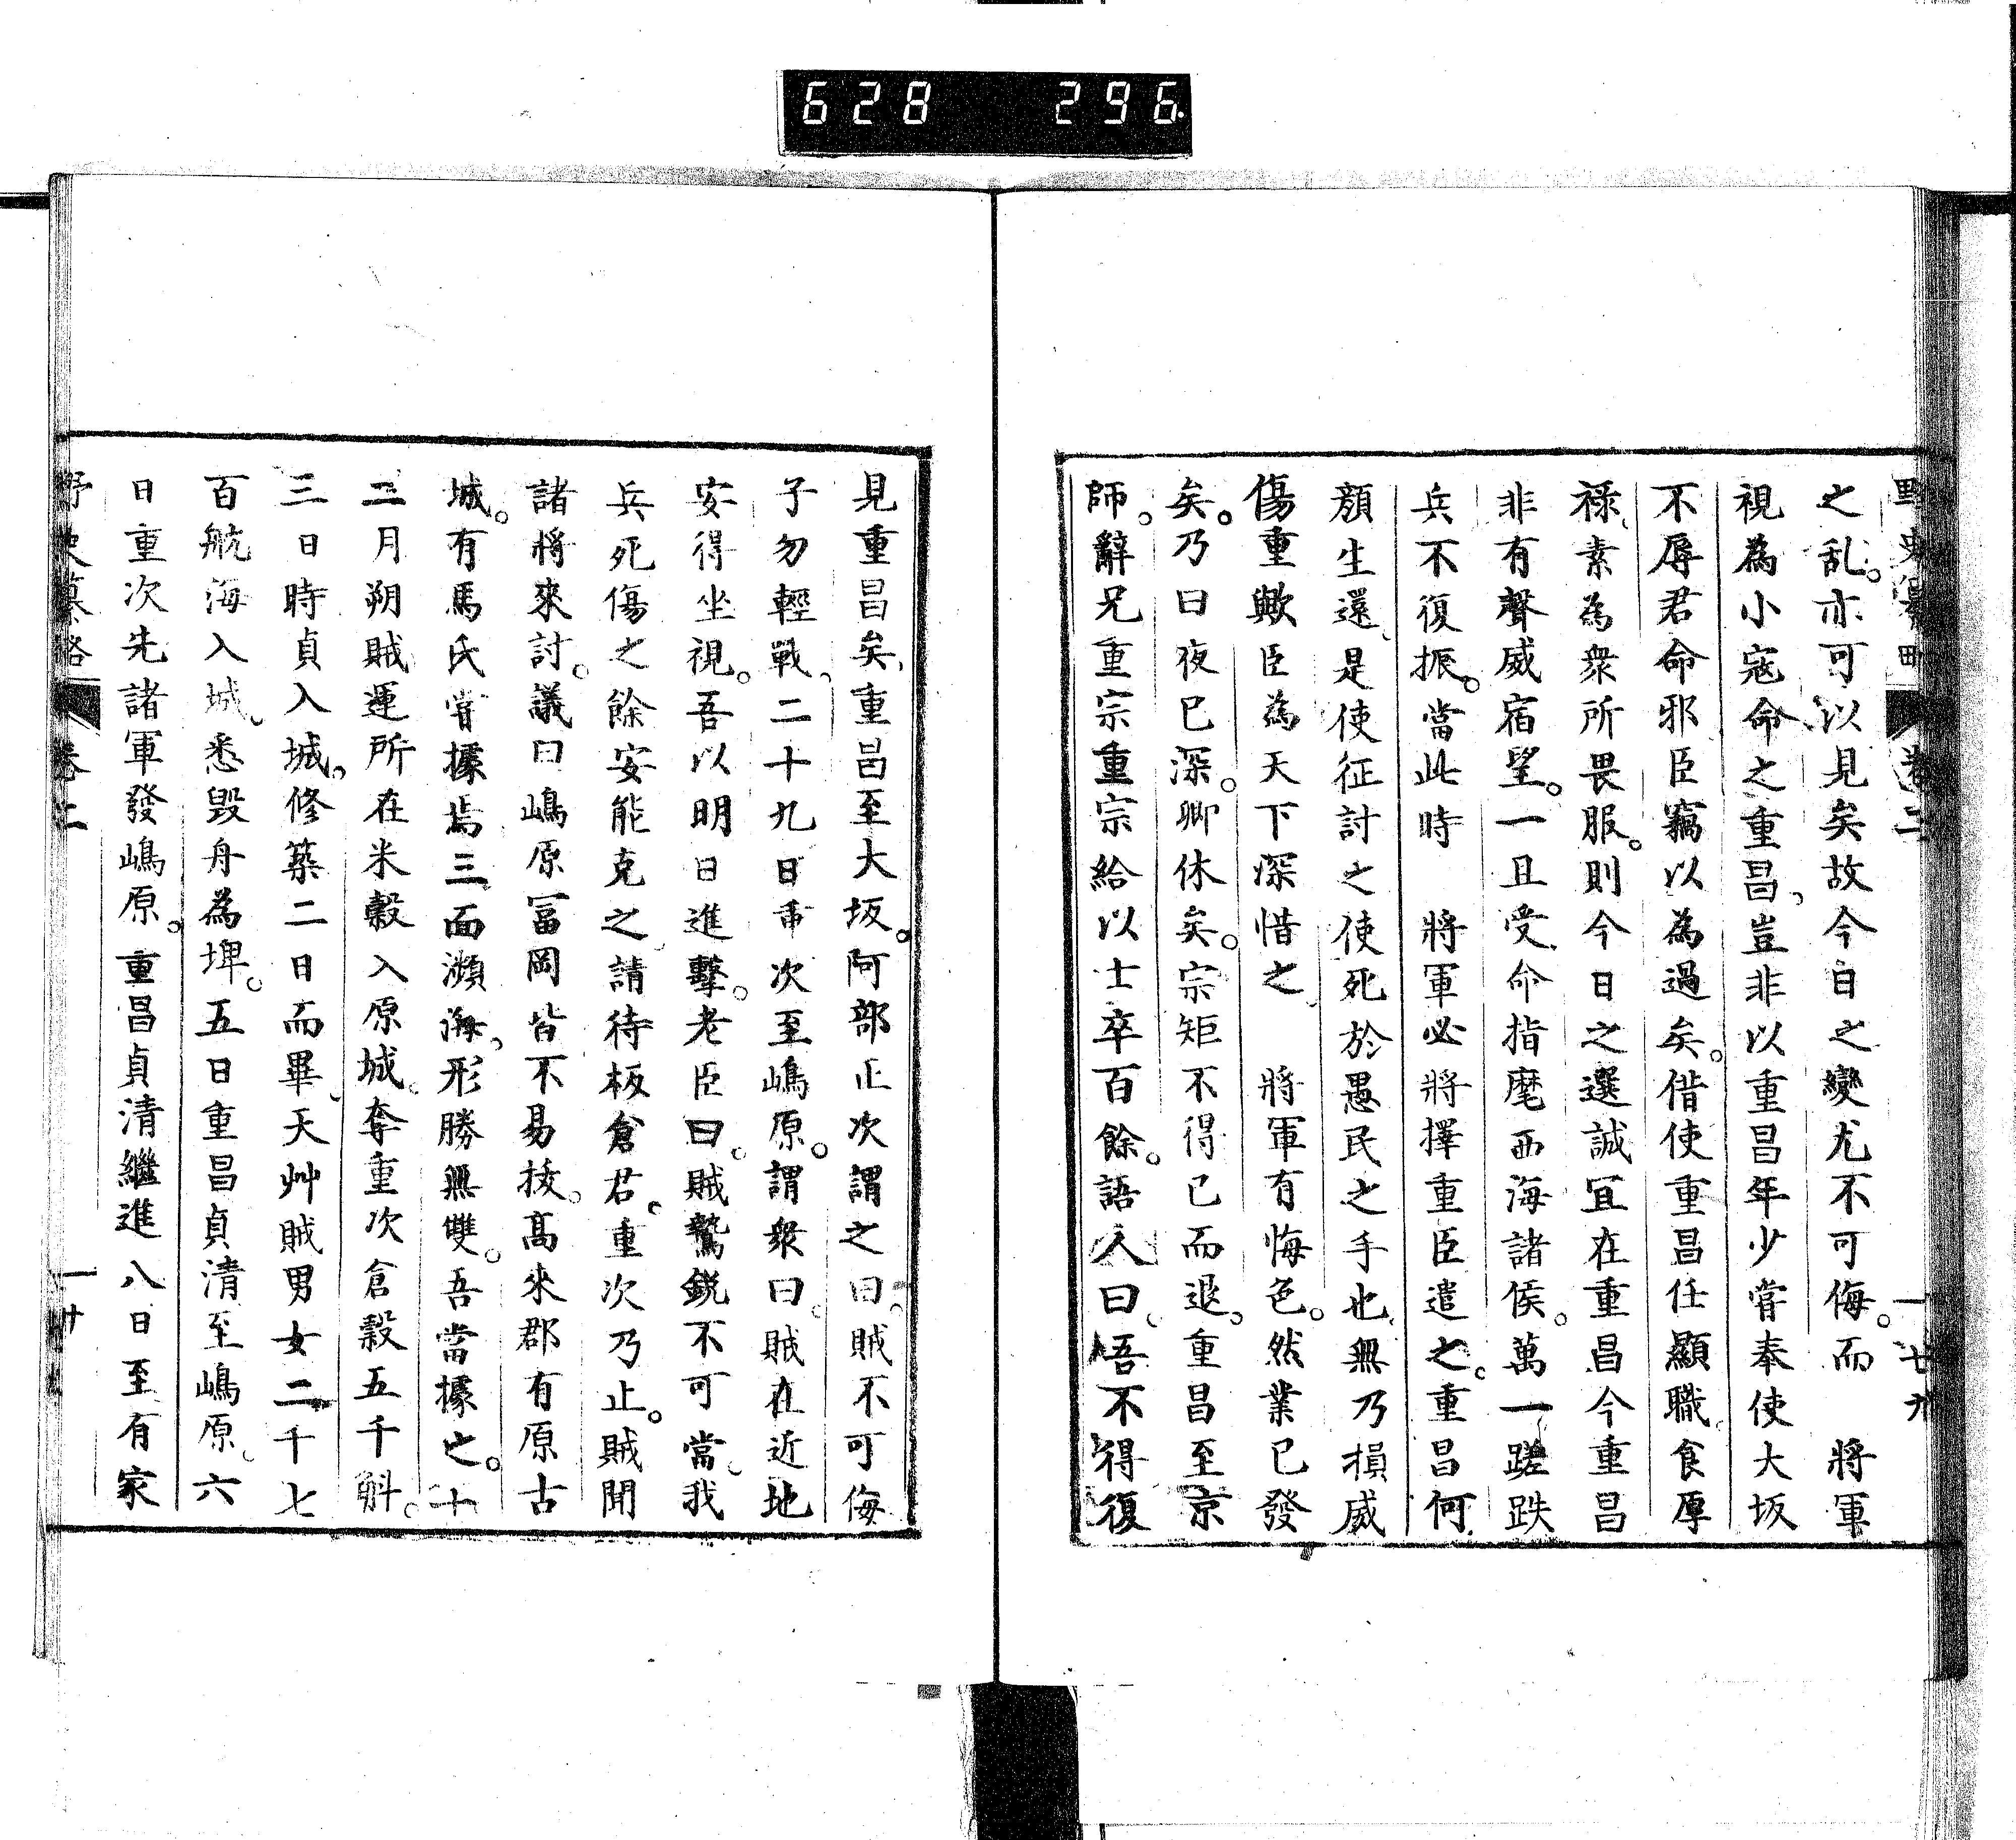 628 296.
野史纂略 卷二 一七九
之乱。亦可以見矣故今日之變尤不可侮。而　將軍
視為小寇命之重昌、豈非以重昌年少嘗奉使大坂
不辱君命邪臣竊以為過矣。借使重昌任顯職、食厚
祿、素為衆所畏服。則今日之選誠宜在重昌今重昌
非有聲威宿望。一旦受命指麾西海諸侯。萬一蹉跌
兵不復振。當此時　將軍必將擇重臣遣之。重昌何
顏生還、是使征討之使死於愚民之手也、無乃損威
傷重歟臣為天下深惜之、　將軍有悔色。然業已發
矣。乃曰夜已深。卿休矣。宗矩不得已而退。重昌至京
師。辭兄重宗重宗給以士卒百餘。語人曰、吾不得復
見重昌矣、重昌至大坂。阿部正次謂之曰、賊不可侮
子勿輕戰、二十九日重次至嶋原。謂衆曰。賊在近地
安得坐視。吾以明日進擊。老臣曰。賊鷙鋭不可當、我
兵死傷之餘安能克之、請待板倉君。重次乃止。賊聞
諸將來討。議曰嶋原冨岡皆不易拔。髙來郡有原古
城。有馬氏嘗據焉三面瀕海、形勝無雙。吾當據之。十
二月朔賊運所在米穀入原城。奪重次倉穀五千斛。
三日時貞入城。修築二日而畢、天艸賊男女二千七
百航海入城、悉毀舟為埤。五日重昌貞清至嶋原、六
日重次先諸軍發嶋原。重昌貞清繼進八日至有家
野史纂略 卷二 一廿